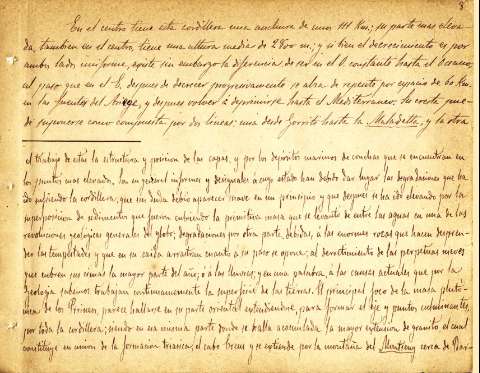 8
En el centro tiene esta cordillera una anchura de unos 111 Km.; su parte mas eleva-
da, tambien en el centro, tiene una altura media de 2800 m.; y si bien el decrecimiento es por
ambos lados uniforme, existe sin embargo la diferencia de ser en el O. constante hasta el Oceano,
al paso que en el E. despues de decrecer progresivamente se alza de repente por espacio de 60 Km.
en las fuentes del Ariege, y despues volver á deprimirse hasta el Mediterraneo; su cresta pue-
de suponerse como compuesta por dos lineas; una desde Gorriti hasta la Maladetta, y la otra
el trabajo de estas la estructura y posicion de las capas, y por los depósitos marinos de conchas que se encuentran en
los puntos mas elevados, son en general informes y desiguales á cuyo estado han debido dar lugar las degradaciones que ha
ido sufriendo la cordillera, que sin duda debió aparecer suave en un principio y que despues se ha ido elevando por la
superposicion de sedimentos que fueron cubriendo la primitiva masa que se levantó de entre las aguas en una de las
revoluciones geológicas generales del globo; degradaciones por otra parte, debidas, á las enormes rocas que hacen despren-
der las tempestades y que en su caida arrastran cuanto á su paso se opone; al derretimiento de las perpetuas nieves
que cubren sus cimas la mayor parte del año; ó á las lluvias; y en una palabra, á las causas actuales que por la
Geología sabemos trabajan continuamente la superficie de las tierras. El principal foco de la masa plutó-
nica de los Pirineos, parece hallarse en su parte oriental estendiendose, para formar el eje y puntos culminantes,
por toda la cordillera; siendo en su misma parte donde se halla acumulada la mayor extension de granito el cual
constituye en union de la formacion triasica, el cabo Creus y se extiende por la montaña del Montseny cerca de Bar-